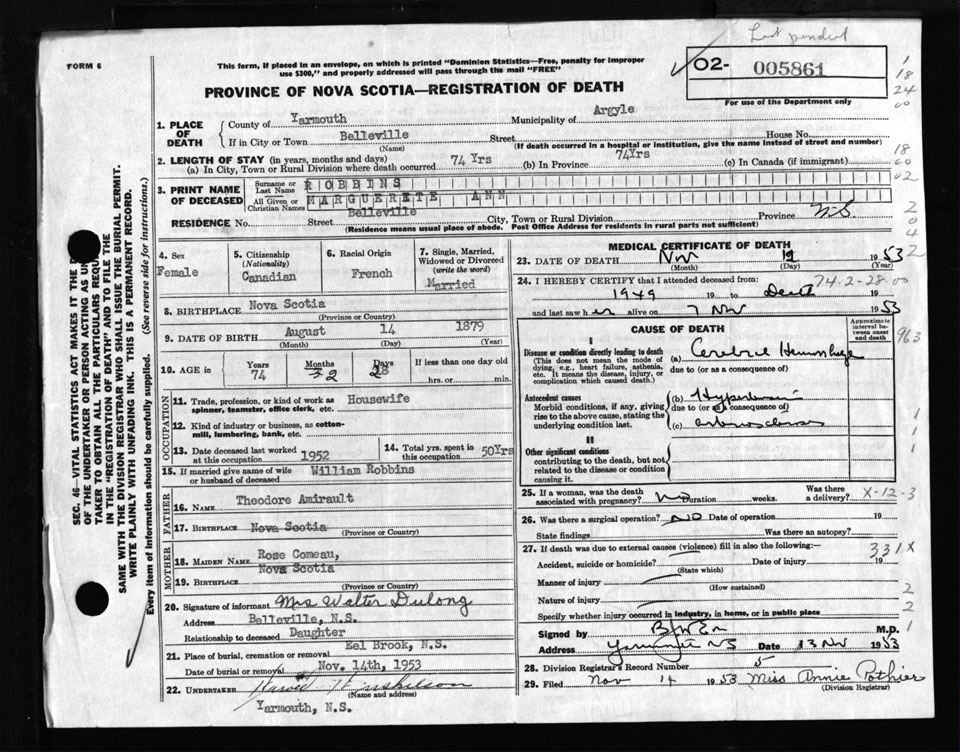 Last pendent
FORM 6
This form, if placed in an envelope, on which is printed "Dominion Statistics—Free, penalty for improper
use $300," and properly addressed will pass through the mail "FREE"
O2- 005861
For use of the Department only
PROVINCE OF NOVA SCOTIA—REGISTRATION OF DEATH
1. PLACE OF DEATH County of Yarmouth Municipality of Argyle
If in City or Town Belleville Street House No.
(Name) (If death occurred in a hospital or institution, give the name instead of street and number)
2. LENGTH OF STAY (in years, months and days)
(a) In City, Town or Rural Division where death occurred 74 Yrs (b) In Province 74Yrs (c) In Canada (if immigrant)
3. PRINT NAME OF DECEASED Surname or Last Name ROBBINS
All Given or Christian Names MARGUERETE ANN
RESIDENCE No. Street Belleville City, Town or Rural Division Province N.S.
(Residence means usual place of abode. Post Office Address for residents in rural parts not sufficient)
4. Sex Female
5. Citizenship (Nationality) Canadian
6. Racial Origin French
7. Single, Married, Widowed or Divorced (write the word) Married
8. BIRTHPLACE Nova Scotia
(Province or Country)
9. DATE OF BIRTH August 14 1879
(Month) (Day) (Year)
10. AGE in Years 74 Months 2 Days 28 If less than one day old hrs. or min.
OCCUPATION
11. Trade, profession, or kind of work as spinner, teamster, office clerk, etc. Housewife
12. Kind of industry or business, as cotton-mill, lumbering, bank, etc.
13. Date deceased last worked at this occupation 1952
14. Total yrs. spent in this occupation 50Yrs
15. If married give name of wife or husband of deceased William Robbins
FATHER
16. NAME Theodore Amirault
17. BIRTHPLACE Nova Scotia
(Province or Country)
MOTHER
18. MAIDEN NAME Rose Comeau,
Nova Scotia
19. BIRTHPLACE
(Province or Country)
20. Signature of informant Mrs Walter Dulong
Address Belleville, N.S.
Relationship to deceased Daughter
21. Place of burial, cremation or removal Eel Brook, N.S.
Date of burial or removal Nov. 14th, 1953
22. UNDERTAKER Harold
(Name and address)
Yarmouth, N.S.
MEDICAL CERTIFICATE OF DEATH
23. DATE OF DEATH Nov 12 1953
(Month) (Day) (Year)
24. I HEREBY CERTIFY that I attended deceased from: 74-2-28-00
1949 19 to Death 19
and last saw her alive on 7 Nov 1953
CAUSE OF DEATH
Approximate interval between onset and death
I
Disease or condition directly leading to death
(This does not mean the mode of dying, e.g., heart failure, asthenia, etc. It means the disease, injury, or complication which caused death.)
(a) Cerebral Hemorrhage
due to (or as a consequence of)
Antecedent causes
Morbid conditions, if any, giving rise to the above cause, stating the underlying condition last.
(b) Hypertension
due to (or as a consequence of)
(c) arteriosclerosis
II
Other significant conditions
contributing to the death, but not related to the disease or condition causing it.
25. If a woman, was the death associated with pregnancy? No Duration weeks. Was there a delivery? X-12-3
26. Was there a surgical operation? No Date of operation 19
State findings Was there an autopsy?
27. If death was due to external causes (violence) fill in also the following:— 331X
Accident, suicide or homicide? Date of injury 19
(State which)
Manner of injury
(How sustained)
Nature of injury
Specify whether injury occurred in industry, in home, or in public place
Signed by M.D.
Address Yarmouth NS Date 13 Nov 1953
28. Division Registrar's Record Number 5
29. Filed Nov 14 1953 Miss Annie Pothier
(Division Registrar)
SEC. 46—VITAL STATISTICS ACT MAKES IT THE
OF THE UNDERTAKER OR PERSON ACTING AS
TAKER TO OBTAIN ALL THE PARTICULARS
IN THE "REGISTRATION OF DEATH" AND TO FILE THE
SAME WITH THE DIVISION REGISTRAR WHO SHALL ISSUE THE BURIAL PERMIT.
WRITE PLAINLY WITH UNFADING INK. THIS IS A PERMANENT RECORD.
Every item of information should be carefully supplied. (See reverse side for instructions.)
1
18
24
00
18
00
02
2
0
4
2
963
1
1
1
2
2
1